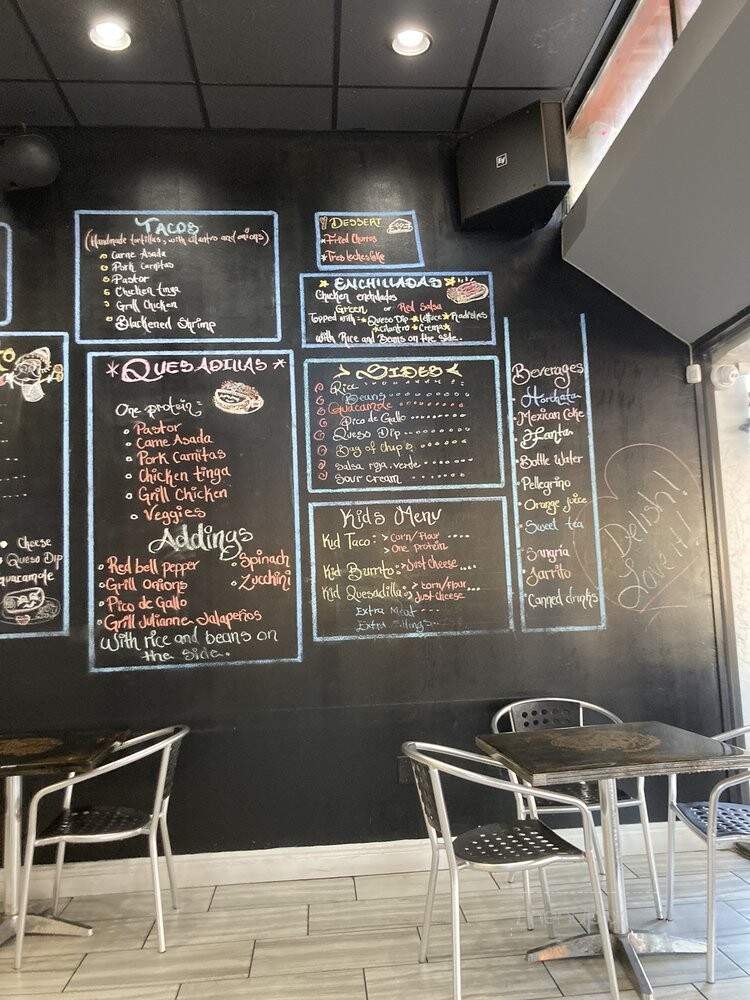 TACOS
(Handmade tortillas, with cilantro and onions)
Carne Asada
Pork Carnitas
Pastor
Chicken tinga
Grill Chicken
Blackened Shrimp
DESSERT
Fried Churros
Tres leches Cake
ENCHILLADAS
Chicken enchiladas
Green or Red Salsa
Topped with: Queso Dip lettuce Radishes
cilantro Crema
with Rice and Beans on the side.
QUESADILLAS
One protein =
Pastor
Carne Asada
Pork Carnitas
Chicken tinga
Grill Chicken
Veggies
Addings
Red bell pepper
Grill onions
Pico de Gallo
Grill Julianne Jalapeños
Spinach
Zucchini
With rice and beans on
the side.
SIDES
Rice
Beans
Guacamole
Pico de Gallo
Queso Dip
Bag of Chips
Salsa roja.verde
Sour Cream
Kids Menu
Kid Taco: > Corn/Flour
> One protein
Kid Burrito: > Just cheese
Kid Quesadilla: > corn/flour
> Just cheese
Extra Meat
Extra Fillings
Beverages
Horchata
Mexican Coke
Fanta
Bottle Water
Pellegrino
Orange juice
Sweet tea
Sangria
Jarrito
Canned drinks
Delish!
Love it!
Cheese
Queso Dip
Guacamole
EV